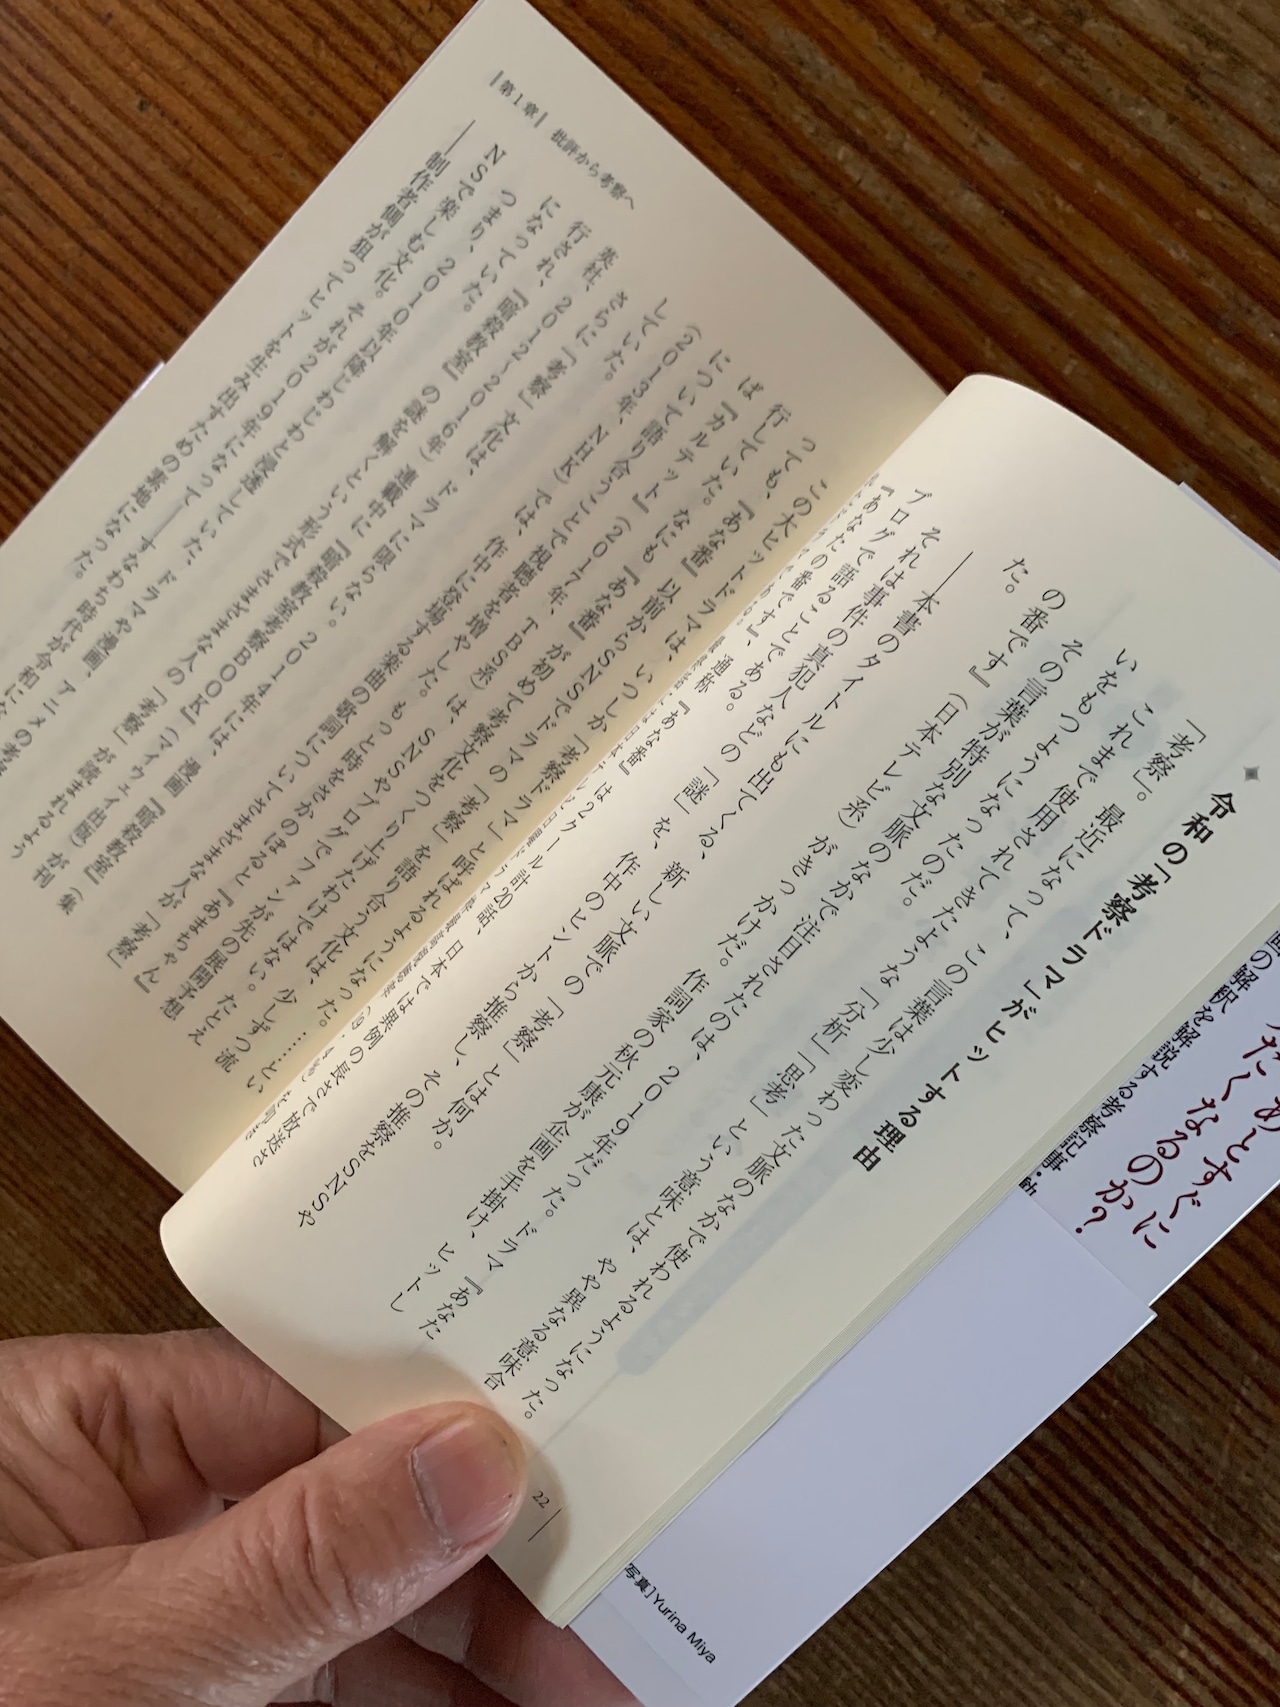 令和の「考察ドラマ」がヒットする理由
「考察」。最近になって、この言葉は少し変わった文脈のなかで使われるようになった。
これまで使用されてきたような「分析」「思考」という意味とは、やや異なる意味合
いをもつようになったのだ。
その言葉が特別な文脈のなかで注目されたのは、2019年だった。ドラマ『あなた
の番です』(日本テレビ系)がきっかけだ。作詞家の秋元康が企画を手掛け、ヒットし
た。
——本書のタイトルにも出てくる、新しい文脈での「考察」とは何か。
それは事件の真犯人などの「謎」を、作中のヒントから推察し、その推察をSNSや
ブログで語ることである。
『あなたの番です』、通称『あな番』は2クール計20話、日本では異例の長さで放送さ
22
|第1章| 批評から考察へ
この大ヒットドラマは、いつしか「考察ドラマ」と呼ばれるようになった。……とい
っても、『あな番』以前からSNSでドラマの「考察」を語り合う文化は、少しずつ流
行していた。なにも『あな番』が初めて考察文化をつくり上げたわけではない。たとえ
ば『カルテット』(2017年、TBS系)は、SNSやブログでファンが先の展開予想
について語り合うことで視聴者を増やした。もっと時をさかのぼると『あまちゃん』
(2013年、NHK)では、作中に登場する楽曲の歌詞についてさまざまな人が「考察」
していた。
さらに「考察」文化は、ドラマに限らない。2014年には、漫画『暗殺教室』(集
英社、2012〜2016年)連載中に『暗殺教室考察BOOK』(マイウェイ出版)が刊
行され、『暗殺教室』の謎を解くという形式でさまざまな人の「考察」が読まれるよう
になっていた。
つまり、2010年以降じわじわと浸透していた、ドラマや漫画、アニメの考察
NSで楽しむ文化。それが2019年になって——すなわち時代が令和にな
——制作者側が狙ってヒットを生み出すための素地になった。
あとすぐに
たくなるのか?
の解釈を解説する考察記事・動
写真]Yurina Miya